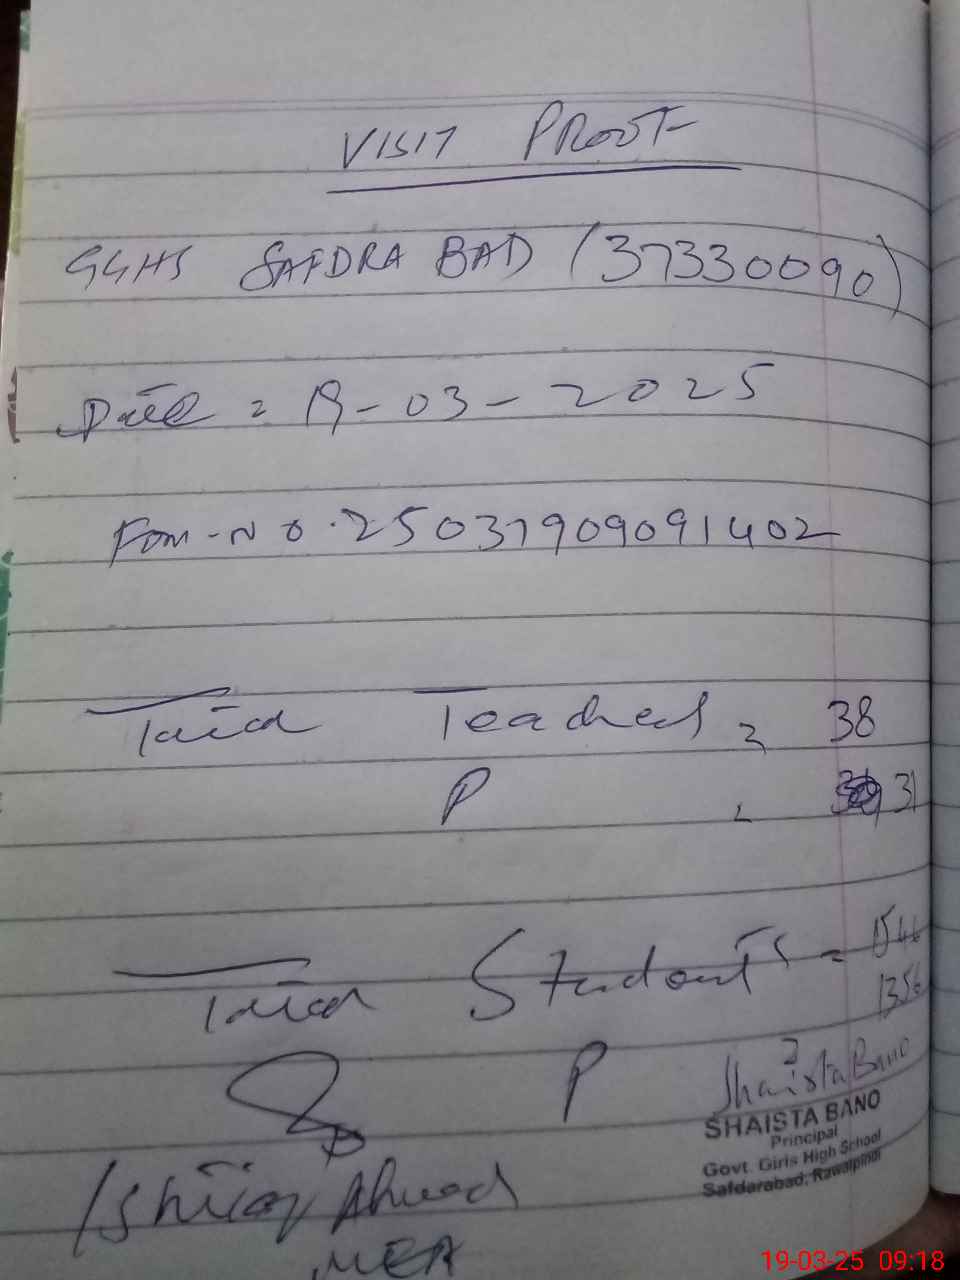 VISIT PROOF
GGHS SAFDRA BAD (37330090)
Date = 19-03-2025
Fom-No.25031909091402
Total Teached = 38
P = 31
Total Students = 1546
1356
P =
Shaista Bano
SHAISTA BANO
Principal
Govt. Girls High School
Safdarabad, Rawalpindi
Ishtiaq Ahmad
MEA
19-03-25 09:18